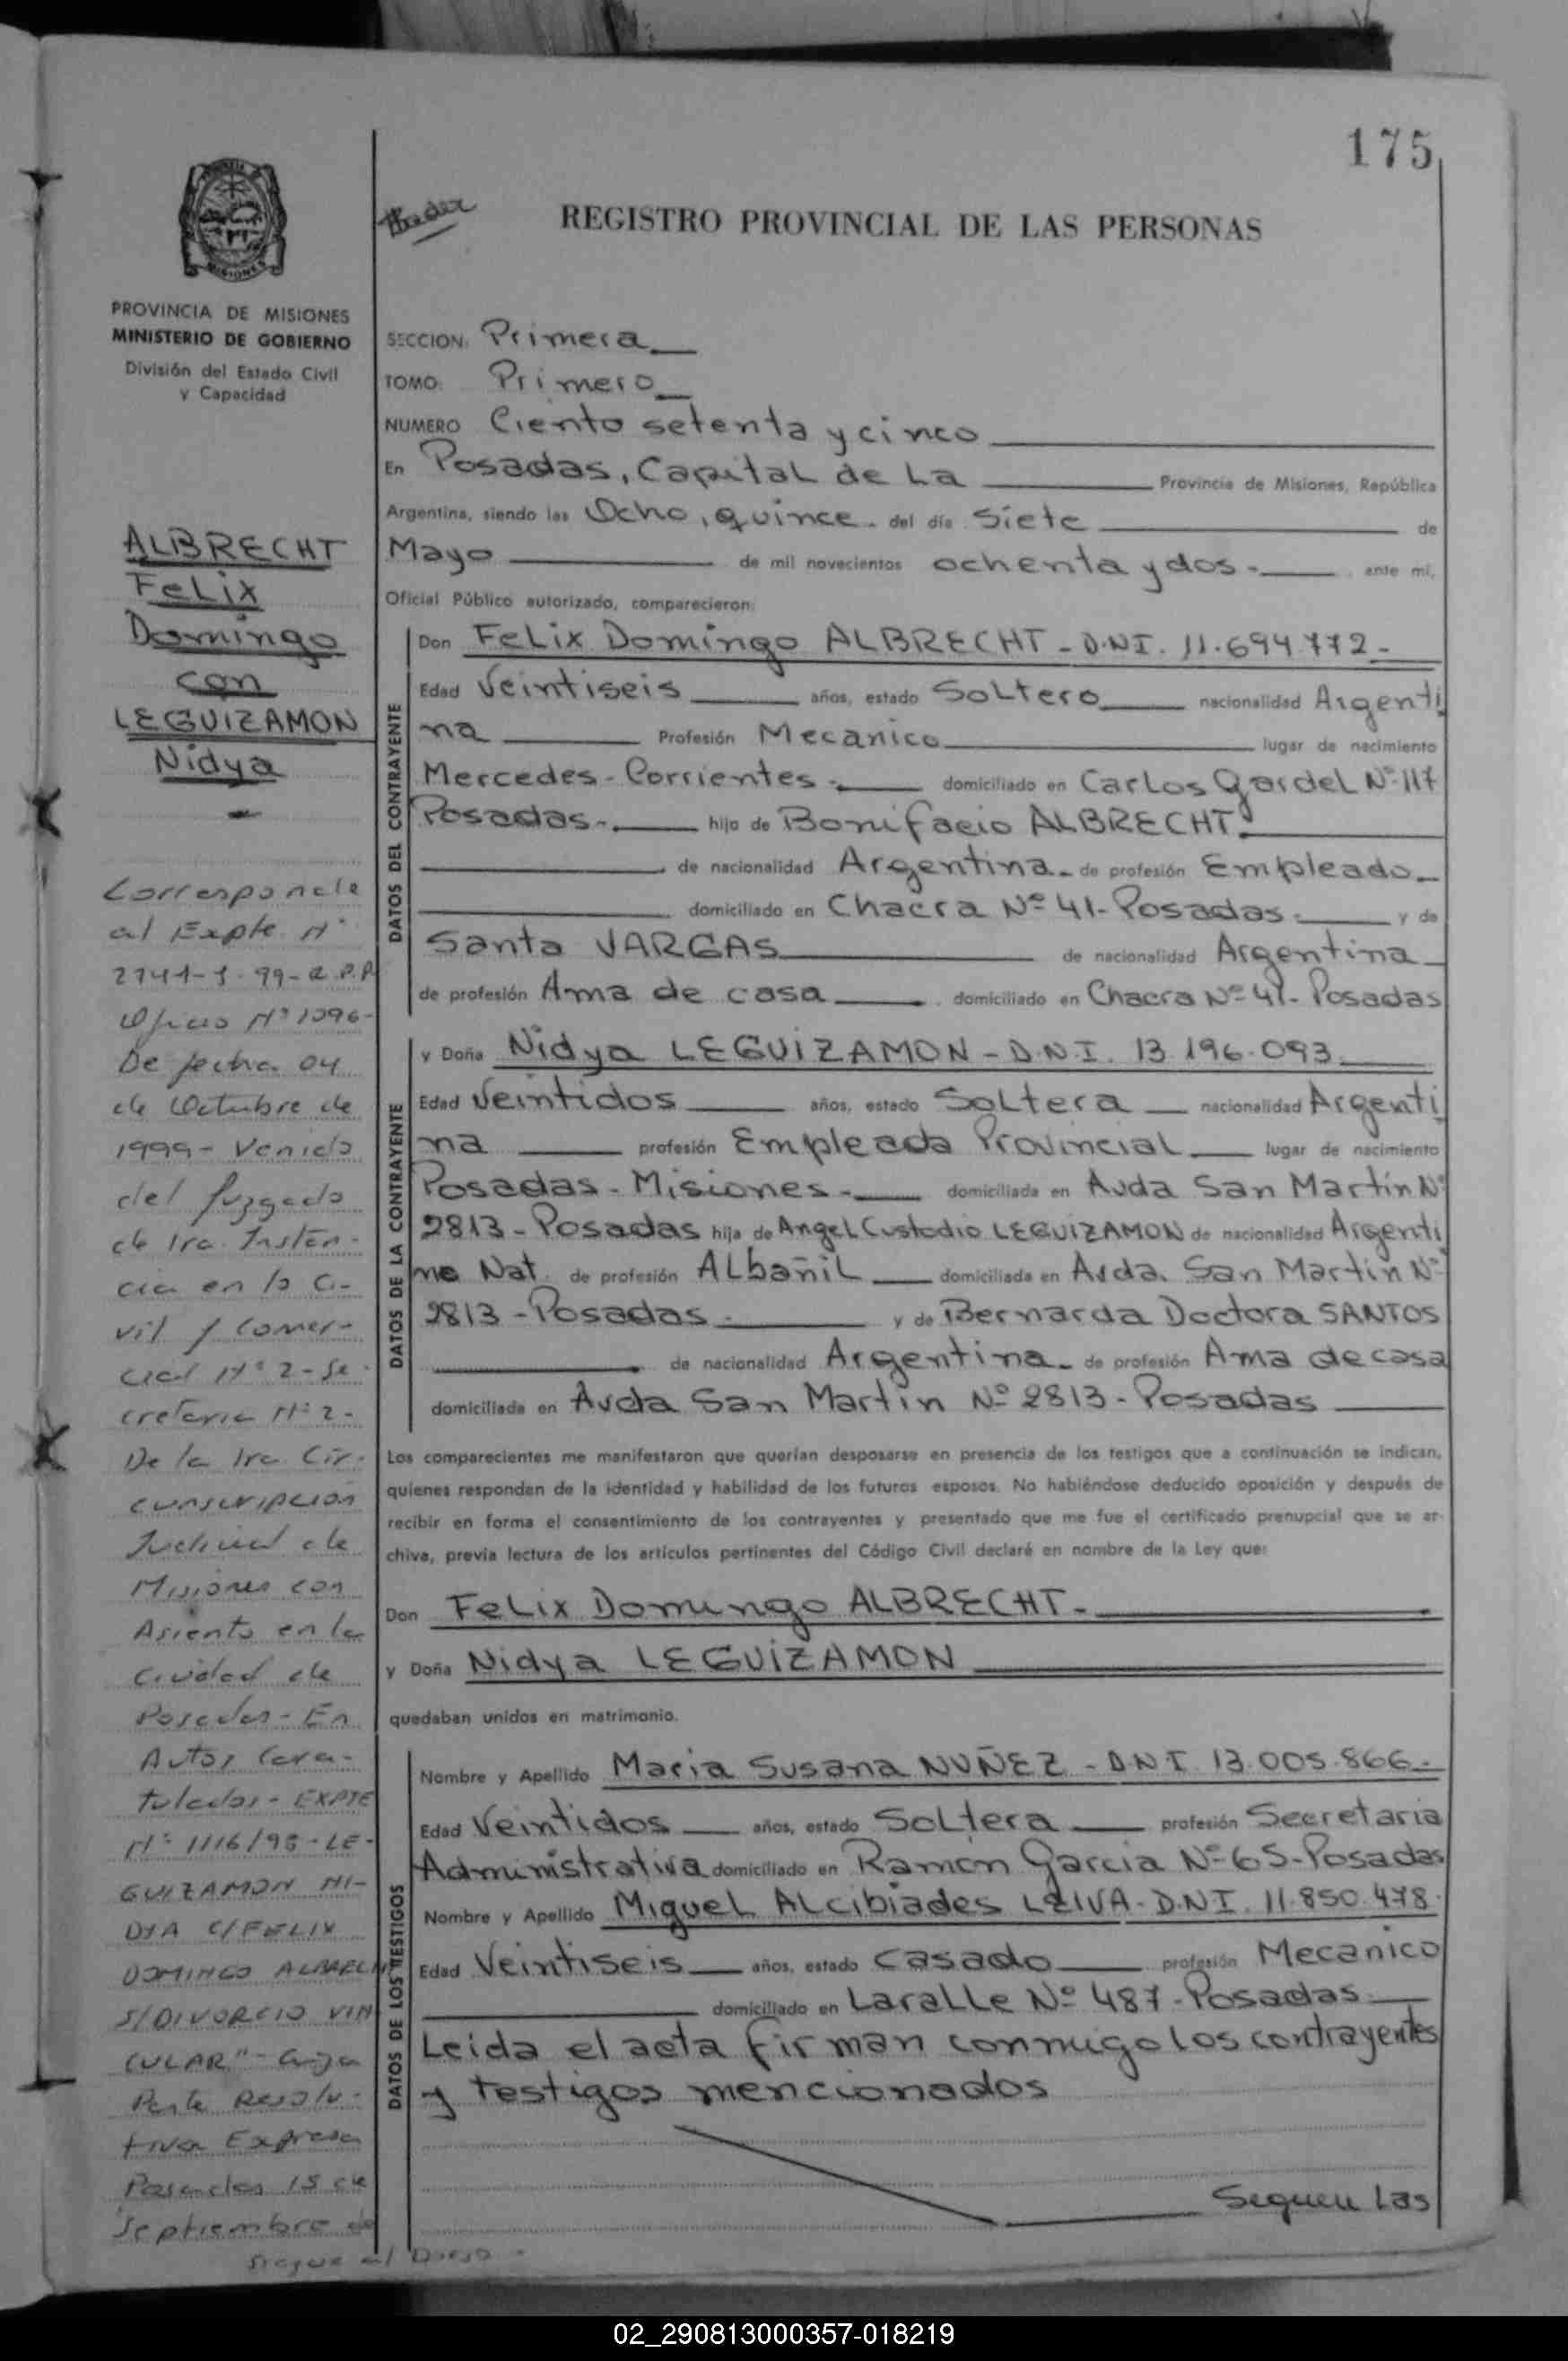 175
REGISTRO PROVINCIAL DE LAS PERSONAS
MISIONES
PROVINCIA DE MISIONES
MINISTERIO DE GOBIERNO
División del Estado Civil
y Capacidad
ALBRECHT
Felix
Domingo
con
LEGUIZAMON
Nidya
Corresponde
al Expte. Nº
2741-
Oficio Nº 1096-
De fecha 04
de Octubre de
1999- Venido
del Juzgado
de 1ra. Instan-
cia en lo Ci-
vil y Comer-
cial Nº 2- Se-
cretaria Nº 2-
De la 1ra. Cir-
cunscripcion
Judicial de
Misiones con
Asiento en la
Ciudad de
Posadas- En
Autos Cara-
tulados- EXPTE
Nº 1116/95-LE-
GUIZAMON NI-
DYA C/FELIX
DOMINGO ALBRECHT
S/DIVORCIO VIN
CULAR"- Cuya
Parte Resolu-
tiva Expresa
Posadas 15 de
Septiembre de
sigue al Dorso -
SECCION: Primera
TOMO: Primero
NUMERO Ciento setenta y cinco
En Posadas, Capital de La Provincia de Misiones, República
Argentina, siendo las Ocho, quince. del día Siete de
Mayo de mil novecientos ochenta y dos.- ante mí,
Oficial Público autorizado, comparecieron:
DATOS DEL CONTRAYENTE
Don Felix Domingo ALBRECHT - D.N.I. 11.694.772.-
Edad Veintiseis años, estado Soltero nacionalidad Argenti
na Profesión Mecanico lugar de nacimiento
Mercedes-Corrientes.- domiciliado en Carlos Gardel Nº 117
Posadas.- hijo de Bonifacio ALBRECHT.
de nacionalidad Argentina.- de profesión Empleado.-
domiciliado en Chacra Nº 41-Posadas.- y de
Santa VARGAS de nacionalidad Argentina
de profesión Ama de casa domiciliado en Chacra Nº 41- Posadas
DATOS DE LA CONTRAYENTE
y Doña Nidya LEGUIZAMON - D.N.I. 13.196.093.
Edad Veintidos años, estado Soltera nacionalidad Argenti
na profesión Empleada Provincial lugar de nacimiento
Posadas - Misiones.- domiciliada en Avda San Martin Nº
2813-Posadas hija de Angel Custodio LEGUIZAMON de nacionalidad Argenti
no Nat. de profesión Albañil domiciliada en Avda. San Martin Nº
2813-Posadas.- y de Bernarda Doctora SANTOS
de nacionalidad Argentina.- de profesión Ama de casa
domiciliada en Avda San Martin Nº 2813-Posadas
Los comparecientes me manifestaron que querían desposarse en presencia de los testigos que a continuación se indican,
quienes responden de la identidad y habilidad de los futuros esposos. No habiéndose deducido oposición y después de
recibir en forma el consentimiento de los contrayentes y presentado que me fue el certificado prenupcial que se ar-
chiva, previa lectura de los artículos pertinentes del Código Civil declaré en nombre de la Ley que:
Don Felix Domingo ALBRECHT.-
y Doña Nidya LEGUIZAMON
quedaban unidos en matrimonio.
DATOS DE LOS TESTIGOS
Nombre y Apellido Maria Susana NUÑEZ - D.N.I. 13.005.866.-
Edad Veintidos años, estado Soltera profesión Secretaria
Administrativa domiciliado en Ramon Garcia Nº 65-Posadas
Nombre y Apellido Miguel Alcibiades LEIVA-D.N.I. 11.850.478.
Edad Veintiseis años, estado Casado profesión Mecanico
domiciliado en Laralle Nº 487-Posadas.
Leida el acta firman conmigo los contrayentes
y testigos mencionados
Siguen Las
02_290813000357-018219